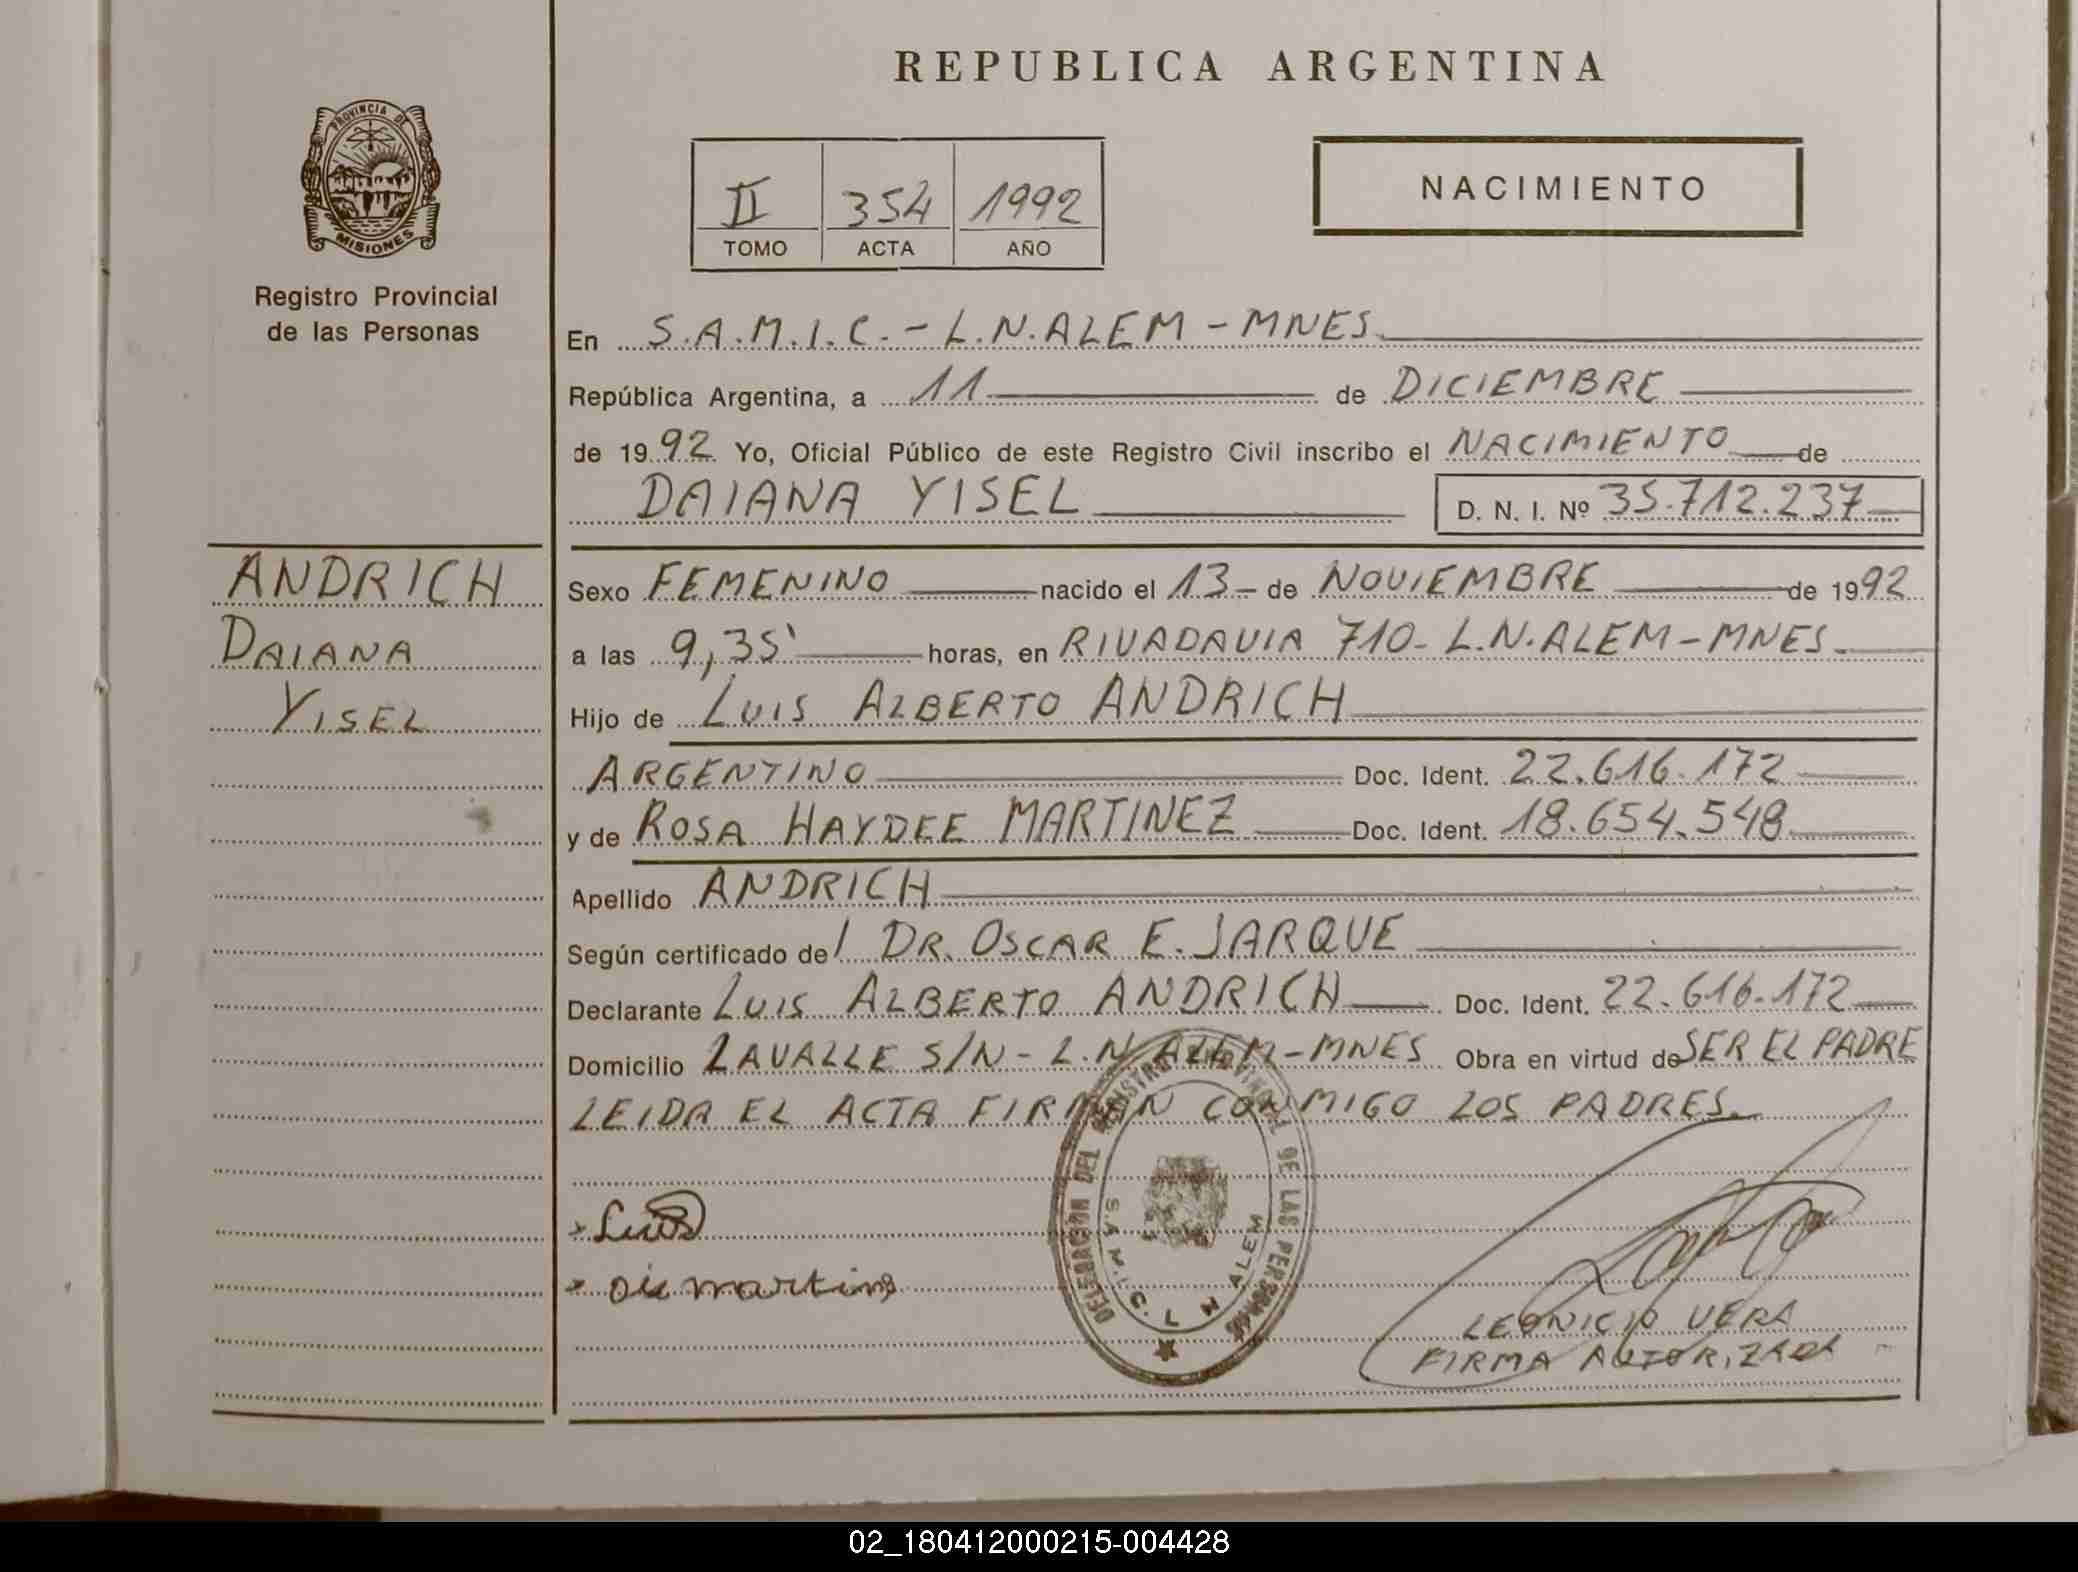 REPUBLICA ARGENTINA
PROVINCIA DE
MISIONES
Registro Provincial
de las Personas
II 354 1992
TOMO ACTA AÑO
NACIMIENTO
En S.A.M.I.C. - L.N.ALEM - MNES.
República Argentina, a 11 de DICIEMBRE
de 1992 Yo, Oficial Público de este Registro Civil inscribo el NACIMIENTO de
DAIANA YISEL D. N. I. Nº 35.712.237
ANDRICH
DAIANA
YISEL
Sexo FEMENINO nacido el 13 - de NOVIEMBRE de 1992
a las 9,35' horas, en RIVADAVIA 710 - L.N.ALEM - MNES.
Hijo de LUIS ALBERTO ANDRICH
ARGENTINO Doc. Ident. 22.616.172
y de ROSA HAYDEE MARTINEZ Doc. Ident. 18.654.548
Apellido ANDRICH
Según certificado de/ DR. OSCAR E. JARQUE
Declarante LUIS ALBERTO ANDRICH Doc. Ident. 22.616.172
Domicilio LAVALLE S/N - L.N.ALEM - MNES Obra en virtud de SER EL PADRE
LEIDA EL ACTA FIRMAN CONMIGO LOS PADRES.
DELEGACION DEL REGISTRO PROVINCIAL DE LAS PERSONAS
S.A.M.I.C. L N ALEM
Luis
LEONICIO VERA
FIRMA AUTORIZADA
02_180412000215-004428